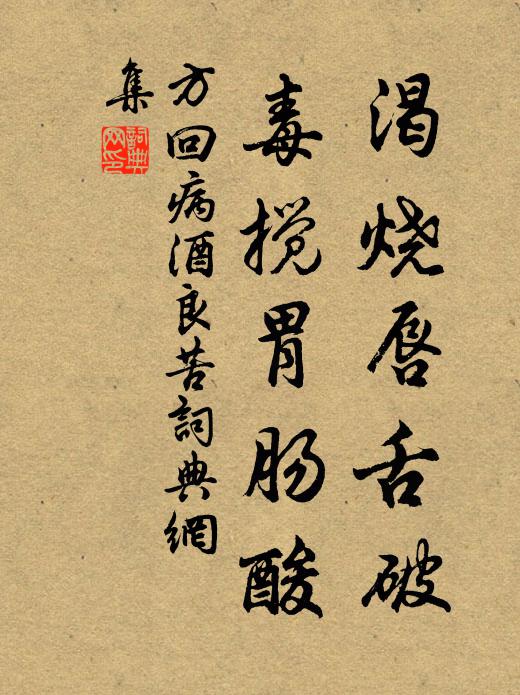 渴烧唇舌破
毒搅胃肠酸
方回病酒良苦詞典網
集
詞典网印